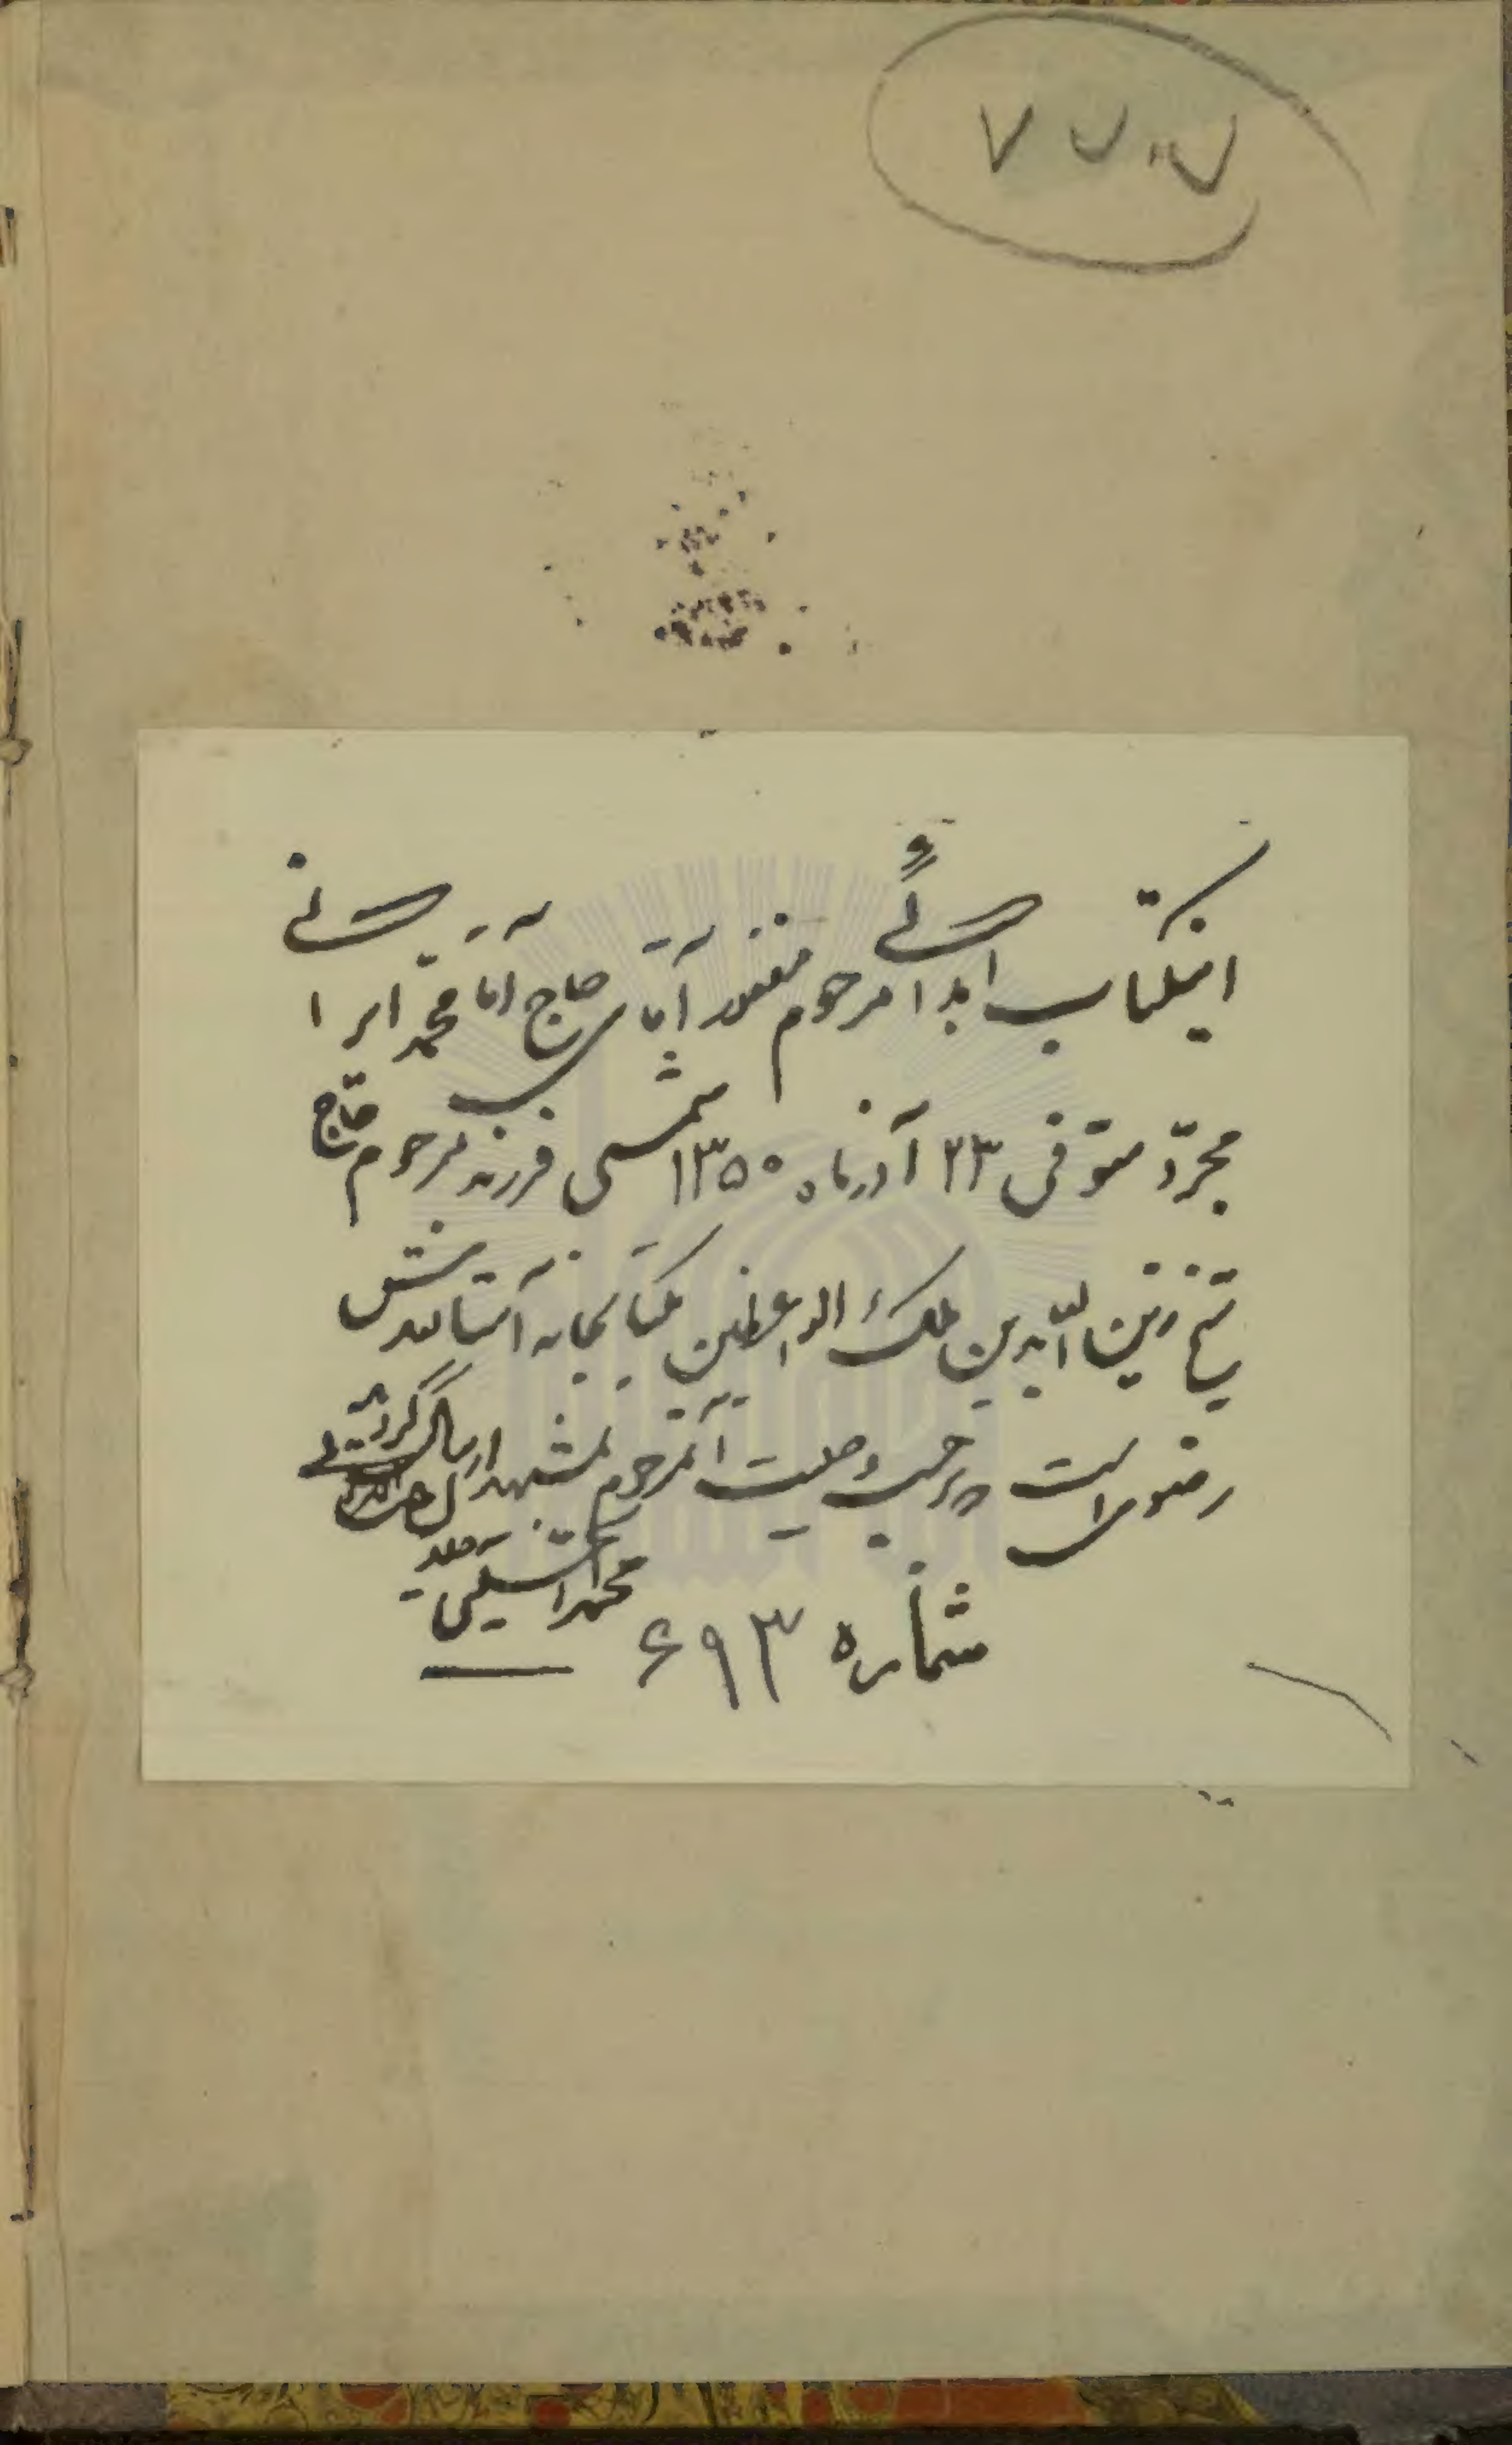 ۷۷۰۷
اینکتاب اهدائی مرحوم مغفور آقای حاج آقا محمد ایرانی
مجرّد متوفی ۲۳ آذرماه ۱۳۵۰ شمسی فرزند مرحوم حاج
شیخ زین الدین ملک الواعظین بکتابخانه آستانقدس
رضوی است برحسب وصیت آنمرحوم بمشهد ارسال گردید
محمد
شماره ۶۹۳